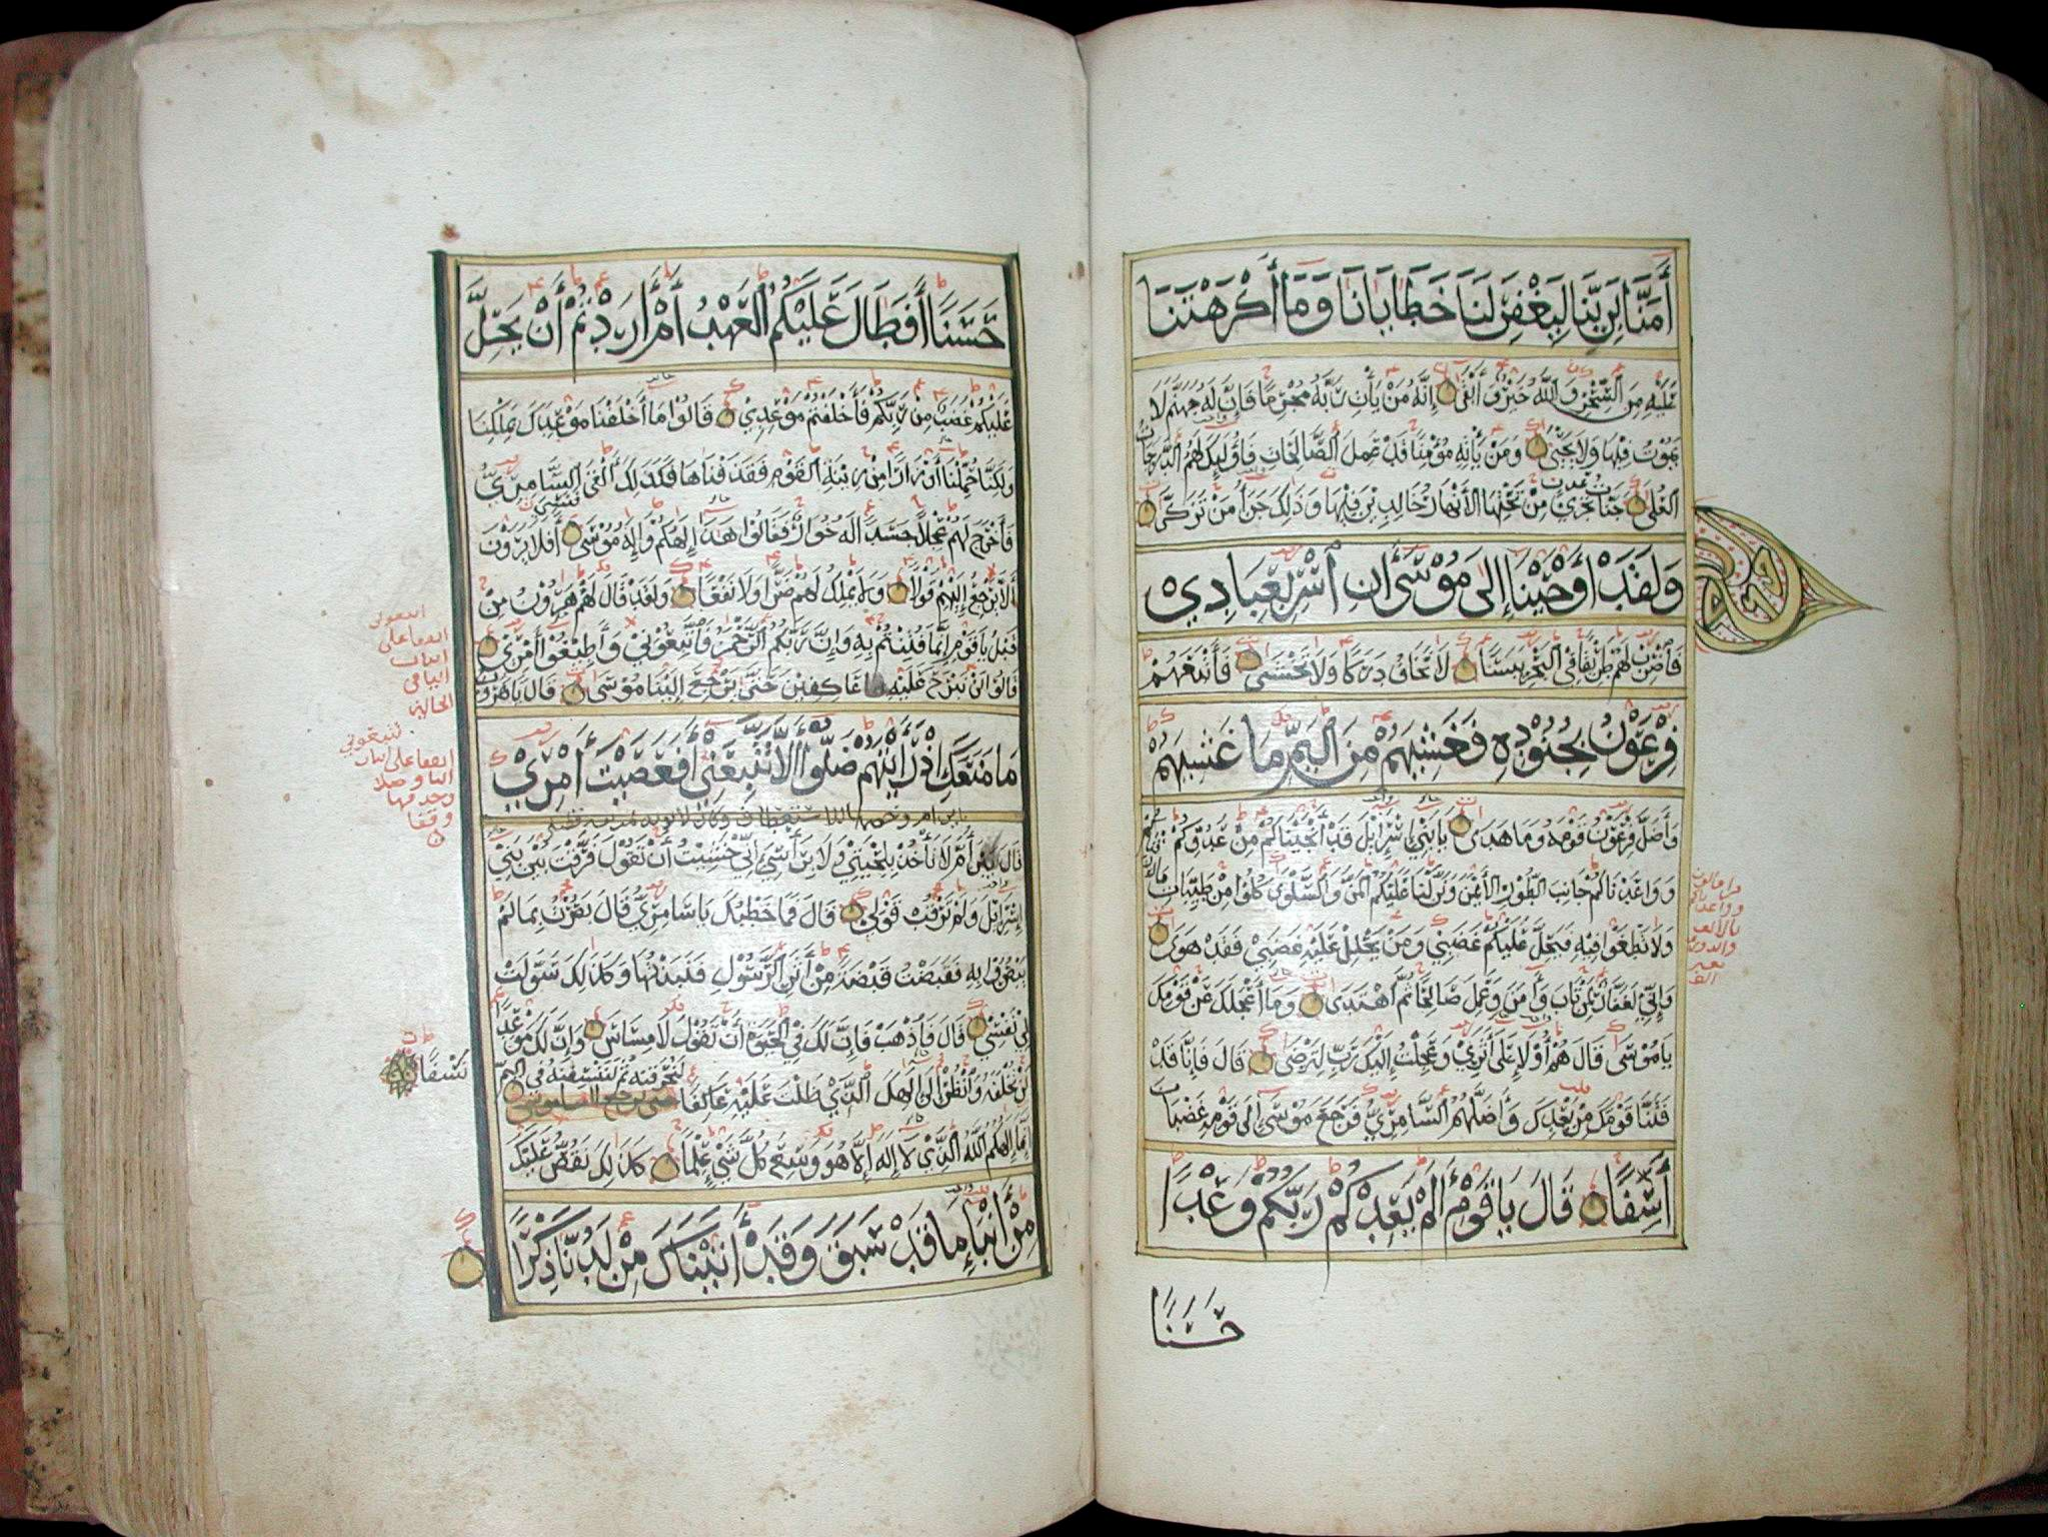 أَمَنَّا لِرَبِّنَا لِيَغْفِرَ لَنَا خَطَايَانَا وَمَا أَكْرَهْتَنَا
عَلَيْهِ مِنَ السِّحْرِ وَاللَّهُ خَيْرٌ وَأَبْقَى إِنَّهُ مَنْ يَأْتِ رَبَّهُ مُجْرِمًا فَإِنَّ لَهُ جَهَنَّمَ لَا
يَمُوتُ فِيهَا وَلَا يَحْيَى وَمَنْ يَأْتِهِ مُؤْمِنًا قَدْ عَمِلَ الصَّالِحَاتِ فَأُولَئِكَ لَهُمُ الدَّرَجَاتُ
الْعُلَى جَنَّاتُ عَدْنٍ تَجْرِي مِنْ تَحْتِهَا الْأَنْهَارُ خَالِدِينَ فِيهَا وَذَلِكَ جَزَاءُ مَنْ تَزَكَّى
وَلَقَدْ أَوْحَيْنَا إِلَى مُوسَى أَنِ اسْرِ بِعِبَادِي
فَاضْرِبْ لَهُمْ طَرِيقًا فِي الْبَحْرِ يَبَسًا لَا تَخَافُ دَرَكًا وَلَا تَخْشَى فَأَتْبَعَهُمْ
فِرْعَوْنُ بِجُنُودِهِ فَغَشِيَهُمْ مِنَ الْيَمِّ مَا غَشِيَهُمْ
وَأَضَلَّ فِرْعَوْنُ قَوْمَهُ وَمَا هَدَى يَا بَنِي إِسْرَائِيلَ قَدْ أَنْجَيْنَاكُمْ مِنْ عَدُوِّكُمْ
وَوَاعَدْنَاكُمْ جَانِبَ الطُّورِ الْأَيْمَنَ وَنَزَّلْنَا عَلَيْكُمُ الْمَنَّ وَالسَّلْوَى كُلُوا مِنْ طَيِّبَاتِ
وَلَا تَطْغَوْا فِيهِ فَيَحِلَّ عَلَيْكُمْ غَضَبِي وَمَنْ يَحْلِلْ عَلَيْهِ غَضَبِي فَقَدْ هَوَى
وَإِنِّي لَغَفَّارٌ لِمَنْ تَابَ وَآمَنَ وَعَمِلَ صَالِحًا ثُمَّ اهْتَدَى وَمَا أَعْجَلَكَ عَنْ قَوْمِكَ
يَا مُوسَى قَالَ هُمْ أُولَاءِ عَلَى أَثَرِي وَعَجِلْتُ إِلَيْكَ رَبِّ لِتَرْضَى قَالَ فَإِنَّا قَدْ
فَتَنَّا قَوْمَكَ مِنْ بَعْدِكَ وَأَضَلَّهُمُ السَّامِرِيُّ فَرَجَعَ مُوسَى إِلَى قَوْمِهِ غَضْبَانَ
أَسِفًا قَالَ يَا قَوْمِ أَلَمْ يَعِدْكُمْ رَبُّكُمْ وَعْدًا
حَسَنًا
حَسَنًا أَفَطَالَ عَلَيْكُمُ الْعَهْدُ أَمْ أَرَدْتُمْ أَنْ يَحِلَّ
عَلَيْكُمْ غَضَبٌ مِنْ رَبِّكُمْ فَأَخْلَفْتُمْ مَوْعِدِي قَالُوا مَا أَخْلَفْنَا مَوْعِدَكَ بِمَلْكِنَا
وَلَكِنَّا حُمِّلْنَا أَوْزَارًا مِنْ زِينَةِ الْقَوْمِ فَقَذَفْنَاهَا فَكَذَلِكَ أَلْقَى السَّامِرِيُّ
فَأَخْرَجَ لَهُمْ عِجْلًا جَسَدًا لَهُ خُوَارٌ فَقَالُوا هَذَا إِلَهُكُمْ وَإِلَهُ مُوسَى فَنَسِيَ أَفَلَا يَرَوْنَ
أَلَّا يَرْجِعُ إِلَيْهِمْ قَوْلًا وَلَا يَمْلِكُ لَهُمْ ضَرًّا وَلَا نَفْعًا وَلَقَدْ قَالَ لَهُمْ هَارُونُ مِنْ
قَبْلُ يَا قَوْمِ إِنَّمَا فُتِنْتُمْ بِهِ وَإِنَّ رَبَّكُمُ الرَّحْمَنُ فَاتَّبِعُونِي وَأَطِيعُوا أَمْرِي
قَالُوا لَنْ نَبْرَحَ عَلَيْهِ عَاكِفِينَ حَتَّى يَرْجِعَ إِلَيْنَا مُوسَى قَالَ يَا هَرُونُ
مَا مَنَعَكَ إِذْ رَأَيْتَهُمْ ضَلُّوا أَلَّا تَتَّبِعَنِ أَفَعَصَيْتَ أَمْرِي
قَالَ يَبْنَؤُمَّ لَا تَأْخُذْ بِلِحْيَتِي وَلَا بِرَأْسِي إِنِّي خَشِيتُ أَنْ تَقُولَ فَرَّقْتَ بَيْنَ بَنِي
إِسْرَائِيلَ وَلَمْ تَرْقُبْ قَوْلِي قَالَ فَمَا خَطْبُكَ يَا سَامِرِيُّ قَالَ بَصُرْتُ بِمَا لَمْ
يَبْصُرُوا بِهِ فَقَبَضْتُ قَبْضَةً مِنْ أَثَرِ الرَّسُولِ فَنَبَذْتُهَا وَكَذَلِكَ سَوَّلَتْ
لِي نَفْسِي قَالَ فَاذْهَبْ فَإِنَّ لَكَ فِي الْحَيَوةِ أَنْ تَقُولَ لَا مِسَاسَ وَإِنَّ لَكَ مَوْعِدًا
لَنْ تُخْلَفَهُ وَانْظُرْ إِلَى إِلَهِكَ الَّذِي ظَلْتَ عَلَيْهِ عَاكِفًا لَنُحَرِّقَنَّهُ ثُمَّ لَنَنْسِفَنَّهُ فِي الْيَمِّ
نَسْفًا
إِنَّمَا إِلَهُكُمُ اللَّهُ الَّذِي لَا إِلَهَ إِلَّا هُوَ وَسِعَ كُلَّ شَيْءٍ عِلْمًا كَذَلِكَ نَقُصُّ عَلَيْكَ
مِنْ أَنْبَاءِ مَا قَدْ سَبَقَ وَقَدْ آتَيْنَاكَ مِنْ لَدُنَّا ذِكْرًا